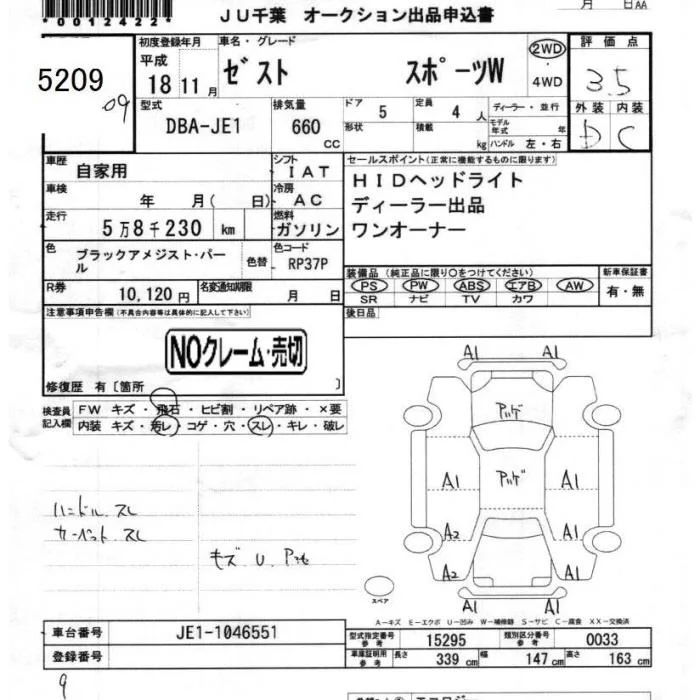 *0012422*
JU千葉 オークション出品申込書
月 日AA
5209
09
初度登録年月
平成
18 11 月
車名・グレード
ゼスト スポーツW
2WD
・
4WD
評価点
3.5
型式
DBA-JE1
排気量
660 CC
ドア 5
形状
定員 4 人
積載 kg
ディーラー・並行
モデル年式 年
ハンドル 左・右
外装 内装
D C
車歴
自家用
シフト
IAT
車検
年 月( 日)
冷房
AC
走行
5万8千230 km
燃料
ガソリン
色
ブラックアメジスト・パール
色替
色コード
RP37P
R券
10,120 円
名変通知期限
月 日
セールスポイント(正常に機能するものに限ります)
HIDヘッドライト
ディーラー出品
ワンオーナー
装備品(純正品に限り○をつけてください)
PS PW ABS エアB AW
SR ナビ TV カワ
新車保証書
有・無
後日品
注意事項申告欄(不具合内容等は具体的に記入して下さい)
NOクレーム・売切
修復歴 有〔箇所 〕
検査員記入欄
FW キズ・飛石・ヒビ割・リペア跡・×要
内装 キズ・汚レ・コゲ・穴・スレ・キレ・破レ
ハンドル スレ
カーペット スレ
キズ U
A1 A1
A1 A1
A2 A1
A2 A1
スペア
A－キズ E－エクボ U－凹み W－補修跡 S－サビ C－腐食 XX－交換済
車台番号
JE1-1046551
登録番号
型式指定番号参考
15295
類別区分番号参考
0033
車庫証明用参考
長さ 339 cm
幅 147 cm
高さ 163 cm
9